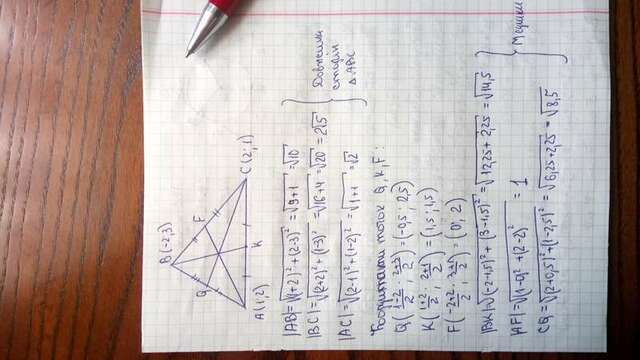 B(-2;3)
Q F
A(1;2) K C(2;1)
|AB|=√((1+2)²+(2-3)²) = √(9+1) = √10
|BC|=√((2+2)²+(1-3)²) = √(16+4) = √20 = 2√5
|AC|=√((2-1)²+(1-2)²) = √(1+1) = √2
Довжини
сторін
△ABC
Координати точок Q, K, F:
Q((1-2)/2; (2+3)/2) = (-0,5; 2,5)
K((1+2)/2; (2+1)/2) = (1,5; 1,5)
F((-2+2)/2; (3+1)/2) = (0; 2)
|BK|=√((-2-1,5)²+(3-1,5)²) = √(12,25+2,25) = √14,5
|AF|=√((1-0)²+(2-2)²) = 1
CQ=√((2+0,5)²+(1-2,5)²) = √(6,25+2,25) = √8,5
Медіани